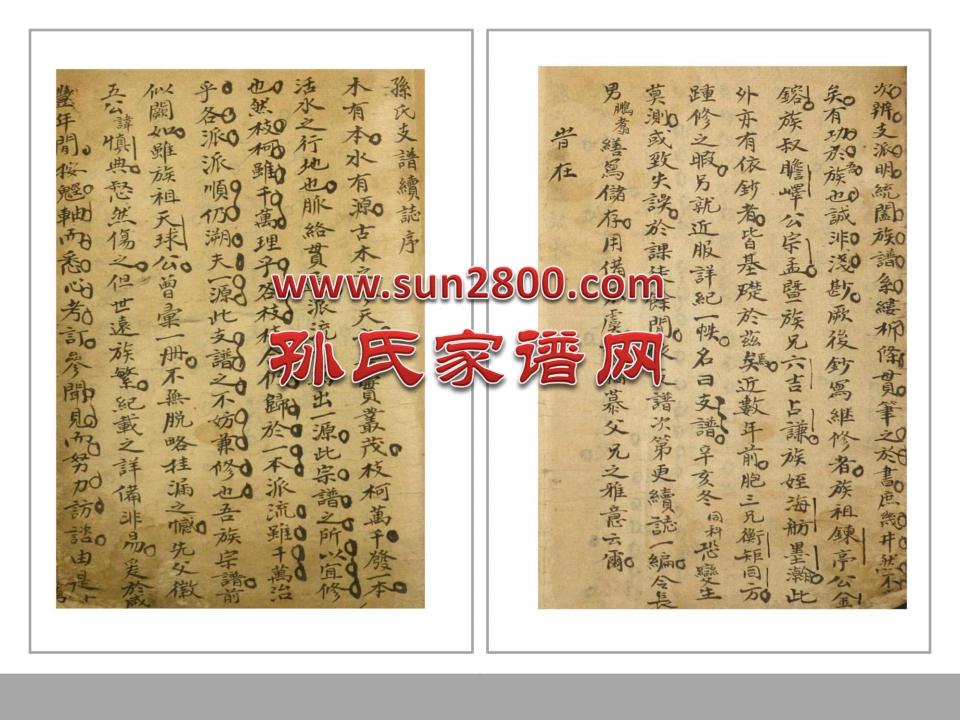 孫氏支譜續誌序
木有本水有源古木之 天 貫叢茂枝柯萬千發一本
活水之行地也脈絡貫 派流 出一源此宗譜之所以宜修
也然枝柯雖千萬理乎各枝枝 仍歸於一本派流雖千萬治
乎各派派順仍溯夫一源此支譜之不妨兼修也吾族宗譜前
似闕如雖族祖天球公曾彙一冊不無脫略挂漏之憾先父徽
五公諱慎典怒然傷之但世遠族繁紀載之詳備非易爰於咸
豐年間 軸而悉心考訂參聞見而努力訪諮由是
次辨支派明統闔族譜系縷析條貫筆之於書庶幾井然不
矣有功於吾族也誠非淺尠厥後鈔寫維修者族祖鍊亭公金
鎔族叔瞻嶧公宗孟暨族兄六吉占謙族姪海舫墨瀚此
外亦有依鈔者皆基礎於茲焉矣近數年前胞三兄衡矩同方
踵修之暇另就近服詳紀一帙名曰支譜辛亥冬同科恐變生
莫測或致失誤於課徒餘閒 譜次第更續誌一編令長
男鵬翥繕寫儲存用備 虞 慕父兄之雅意云爾
昔在
www.sun2800.com
孙氏家谱网